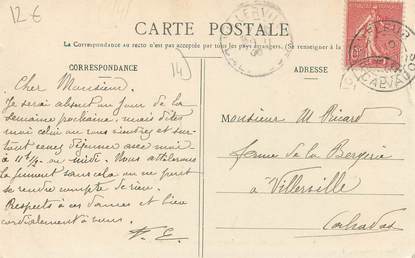 12€
CARTE POSTALE
La Correspondance au recto n'est pas acceptée par tous les pays étrangers. (Se renseigner à la
CORRESPONDANCE
14
ADRESSE
Cher Monsieur.
Je serai absent un jour de la
semaine prochaine. mais dites
moi celui où vous viendrez et sur-
tout venez déjeuner avec moi
à 11h ¼ ou midi. Vous attelerons
la jument sans cela on ne peut
se rendre compte de rien.
Respects à ces dames et bien
cordialement à vous.
Monsieur M
ferme de la Bergerie
à Villerville
Calvados